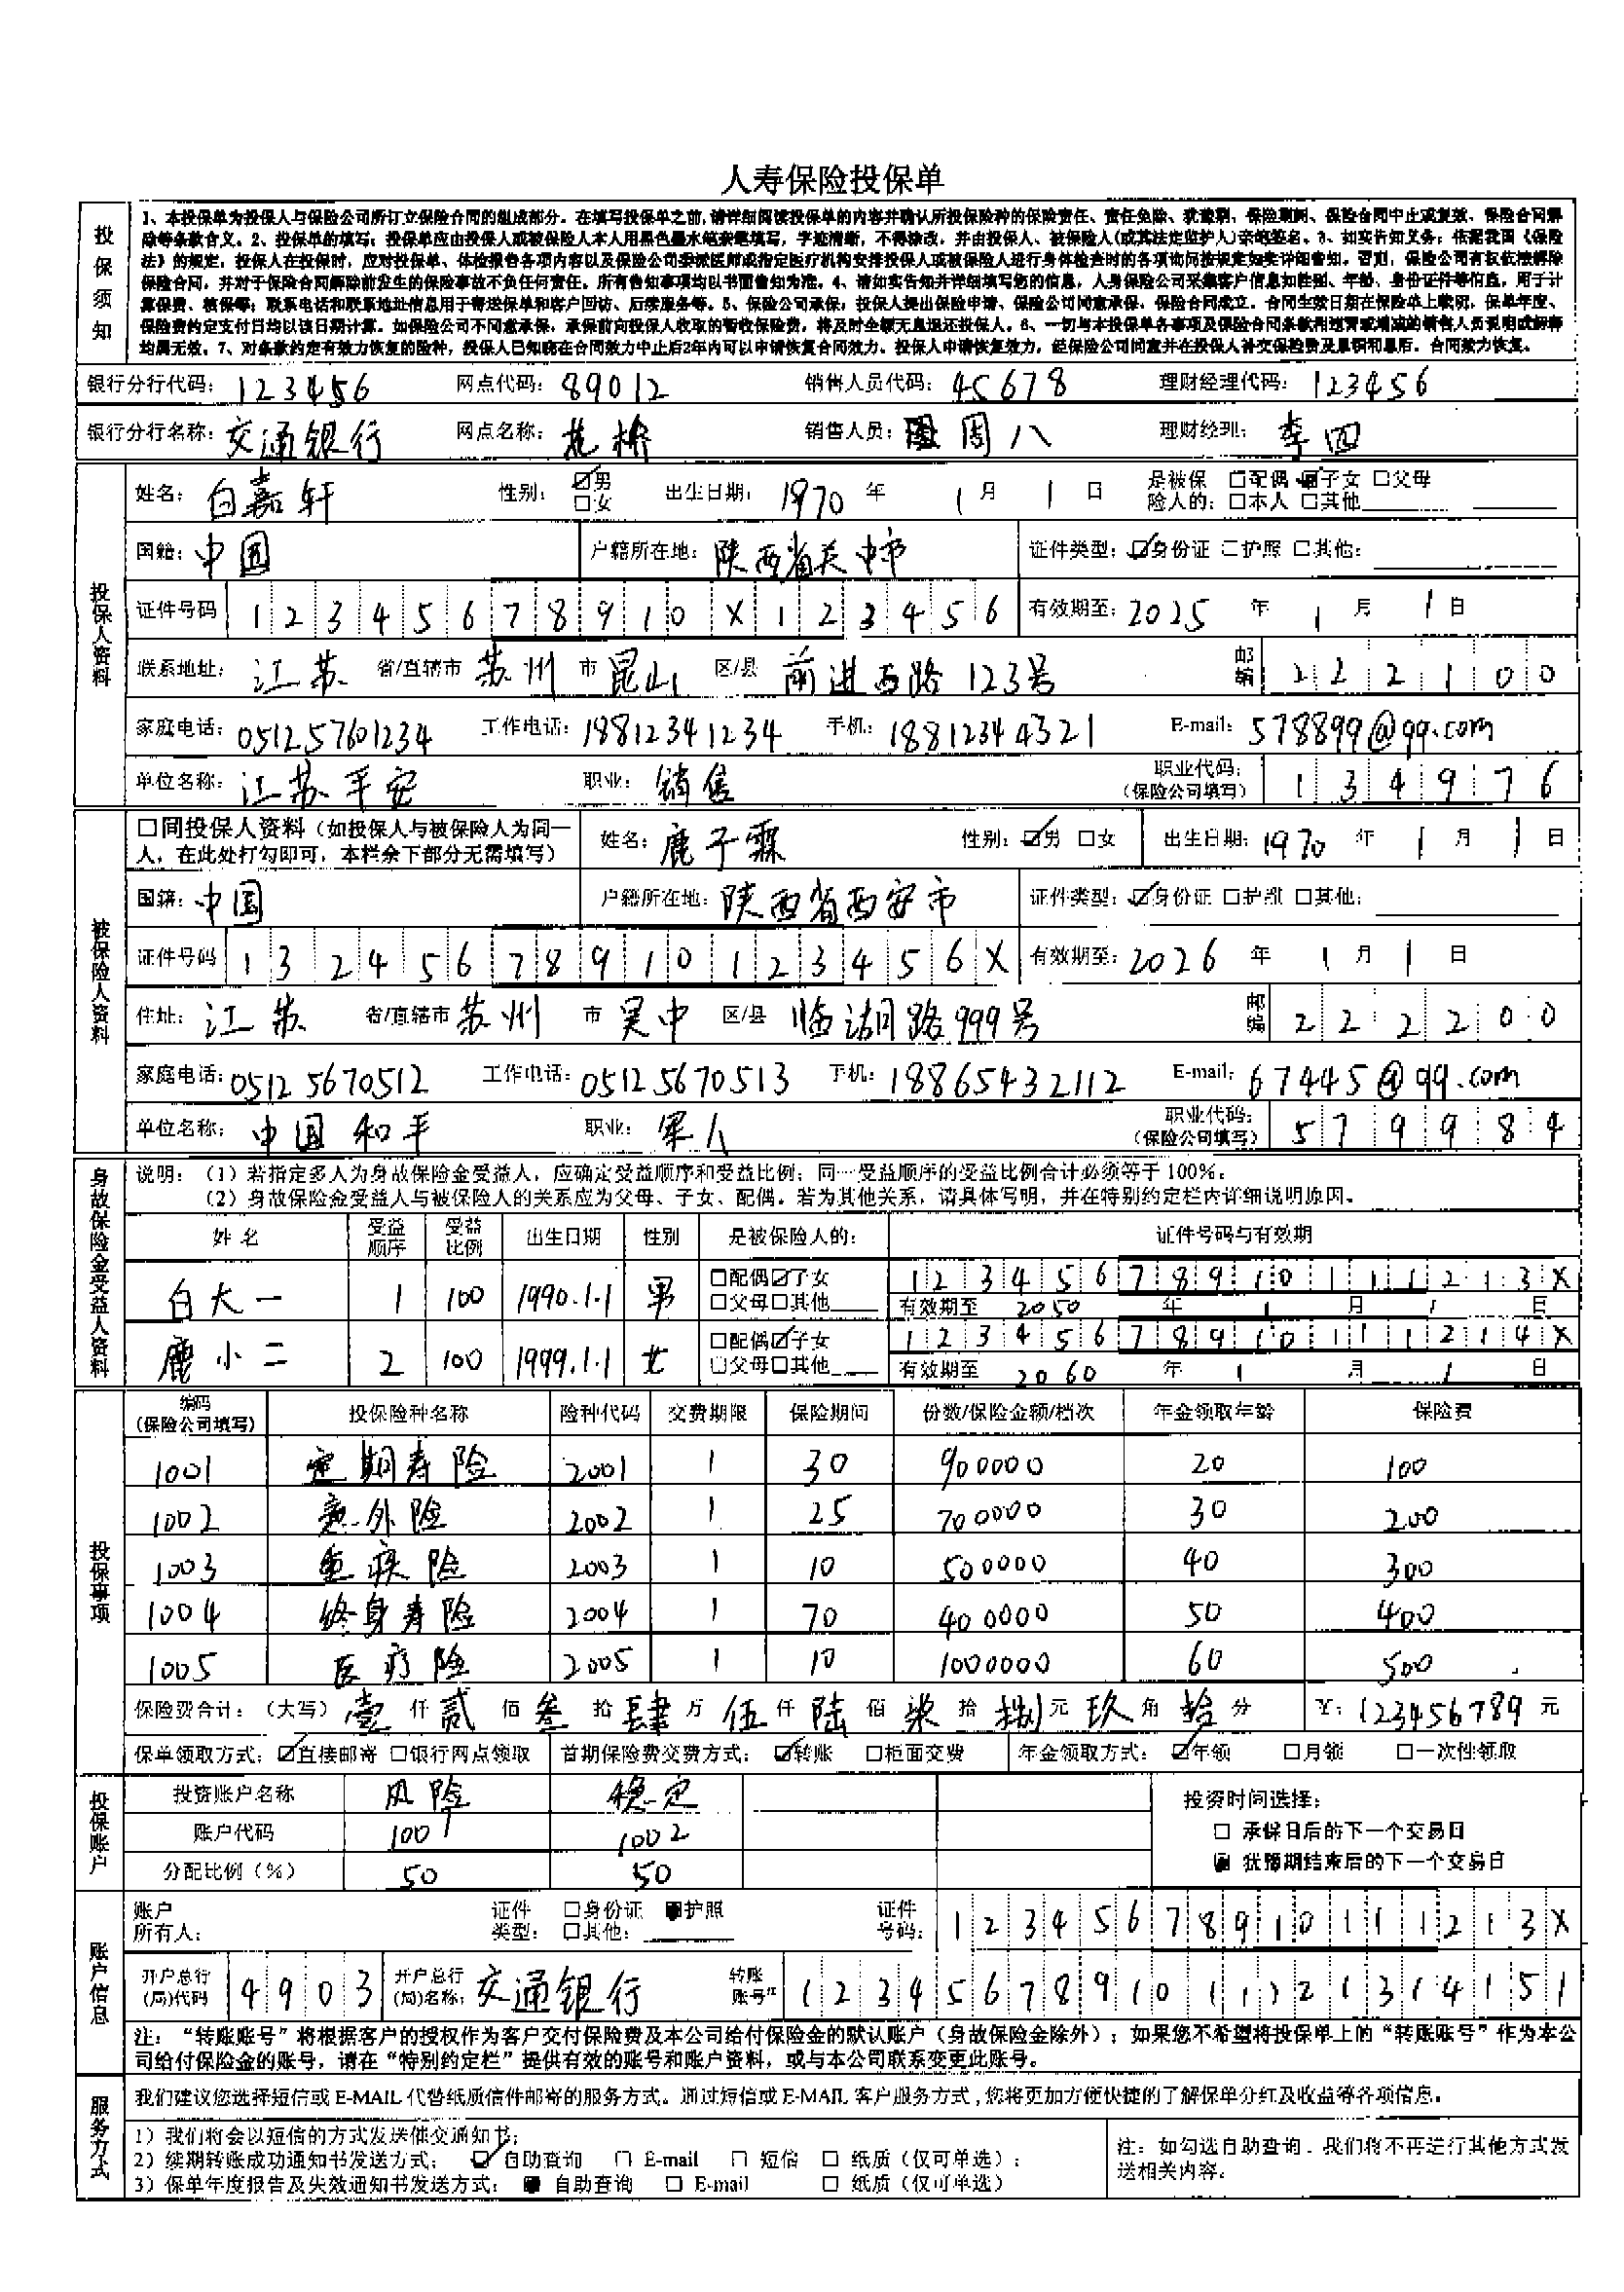 人寿保险投保单
投保须知
1、本投保单为投保人与保险公司所订立保险合同的组成部分。在填写投保单之前,请详细阅读投保单的内容并确认所投保险种的保险责任、责任免除、犹豫期、保险期间、保险合同中止或复效、保险合同解
除等条款含义。2、投保单的填写：投保单应由投保人或被保险人本人用黑色墨水笔亲笔填写，字迹清晰，不得涂改，并由投保人、被保险人(或其法定监护人)亲笔签名。3、如实告知义务：依据我国《保险
法》的规定，投保人在投保时，应对投保单、体检报告各项内容以及保险公司委派医师或指定医疗机构安排投保人或被保险人进行身体检查时的各项询问按规定如实详细告知。否则，保险公司有权依法解除
保险合同，并对于保险合同解除前发生的保险事故不负任何责任。所有告知事项均以书面告知为准。4、请如实告知并详细填写您的信息，人身保险公司采集客户信息如性别、年龄、身份证件等信息，用于计
算保费、核保等；联系电话和联系地址信息用于寄送保单和客户回访、后续服务等。5、保险公司承保：投保人提出保险申请、保险公司同意承保，保险合同成立。合同生效日期在保险单上载明，保单年度、
保险费约定支付日均以该日期计算。如保险公司不同意承保，承保前向投保人收取的暂收保险费，将及时全额无息退还投保人。6、一切与本投保单各事项及保险合同条款相违背或增减的销售人员说明或解释
均属无效。7、对条款约定有效力恢复的险种，投保人已知晓在合同效力中止后2年内可以申请恢复合同效力。投保人申请恢复效力，经保险公司同意并在投保人补交保险费及累积利息后，合同效力恢复。
银行分行代码：123456 网点代码：89012 销售人员代码：45678 理财经理代码：123456
银行分行名称：交通银行 网点名称：花桥 销售人员：周八 理财经理：李四
投保人资料
姓名：白嘉轩 性别：☑男 □女 出生日期：1970年1月1日 是被保险人的：□配偶 ☑子女 □父母 □本人 □其他
国籍：中国 户籍所在地：陕西省关中市 证件类型：☑身份证 □护照 □其他：
证件号码 12345678910X123456 有效期至：2025年1月1日
联系地址：江苏 省/直辖市 苏州 市 昆山 区/县 前进西路123号 邮编 222100
家庭电话：051257601234 工作电话：18812341234 手机：18812344321 E-mail：578899@qq.com
单位名称：江苏平安 职业：销售 职业代码：（保险公司填写）134976
被保险人资料
□同投保人资料（如投保人与被保险人为同一人，在此处打勾即可，本栏余下部分无需填写） 姓名：鹿子霖 性别：☑男 □女 出生日期：1970年1月1日
国籍：中国 户籍所在地：陕西省西安市 证件类型：☑身份证 □护照 □其他：
证件号码 13245678910123456X 有效期至：2026年1月1日
住址：江苏 省/直辖市 苏州 市 吴中 区/县 临湖路999号 邮编 222200
家庭电话：05125670512 工作电话：05125670513 手机：18865432112 E-mail：67445@qq.com
单位名称：中国和平 职业：军人 职业代码：（保险公司填写）579984
身故保险金受益人资料
说明：（1）若指定多人为身故保险金受益人，应确定受益顺序和受益比例；同一受益顺序的受益比例合计必须等于100%。
（2）身故保险金受益人与被保险人的关系应为父母、子女、配偶。若为其他关系，请具体写明，并在特别约定栏内详细说明原因。
姓名 受益顺序 受益比例 出生日期 性别 是被保险人的： 证件号码与有效期
白大一 1 100 1990.1.1 男 □配偶☑子女 □父母□其他 12345678910111213X
有效期至 2050年1月1日
鹿小二 2 100 1999.1.1 女 □配偶☑子女 □父母□其他 12345678910111214X
有效期至 2060年1月1日
投保事项
编码（保险公司填写） 投保险种名称 险种代码 交费期限 保险期间 份数/保险金额/档次 年金领取年龄 保险费
1001 定期寿险 2001 1 30 900000 20 100
1002 意外险 2002 1 25 700000 30 200
1003 重疾险 2003 1 10 500000 40 300
1004 终身寿险 2004 1 70 400000 50 400
1005 医疗险 2005 1 10 1000000 60 500
保险费合计：（大写）壹仟贰佰叁拾肆万伍仟陆佰柒拾捌元玖角拾分 ￥：123456789元
保单领取方式：☑直接邮寄 □银行网点领取 首期保险费交费方式：☑转账 □柜面交费 年金领取方式：☑年领 □月领 □一次性领取
投保账户
投资账户名称 风险 稳定 投资时间选择：
账户代码 1001 1002 □ 承保日后的下一个交易日
分配比例（%） 50 50 ☑ 犹豫期结束后的下一个交易日
账户信息
账户所有人： 证件类型：□身份证 ☑护照 □其他： 证件号码：12345678910111213X
开户总行(局)代码 4903 开户总行(局)名称：交通银行 转账账号 123456789101121314151
注：“转账账号”将根据客户的授权作为客户交付保险费及本公司给付保险金的默认账户（身故保险金除外）；如果您不希望将投保单上的“转账账号”作为本公
司给付保险金的账号，请在“特别约定栏”提供有效的账号和账户资料，或与本公司联系变更此账号。
服务方式
我们建议您选择短信或 E-MAIL 代替纸质信件邮寄的服务方式。通过短信或 E-MAIL 客户服务方式，您将更加方便快捷的了解保单分红及收益等各项信息。
1）我们将会以短信的方式发送催交通知书；
2）续期转账成功通知书发送方式：☑ 自助查询 □ E-mail □ 短信 □ 纸质（仅可单选）；
3）保单年度报告及失效通知书发送方式：☑ 自助查询 □ E-mail □ 纸质（仅可单选）
注：如勾选自助查询，我们将不再进行其他方式发
送相关内容。